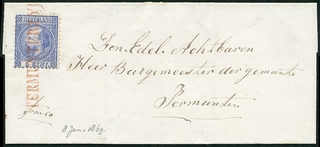 NEDERLAND
Den Edel Achtbaren
Heer Burgemeester der gemeente
Termunten
franco
8 Jan. 1869